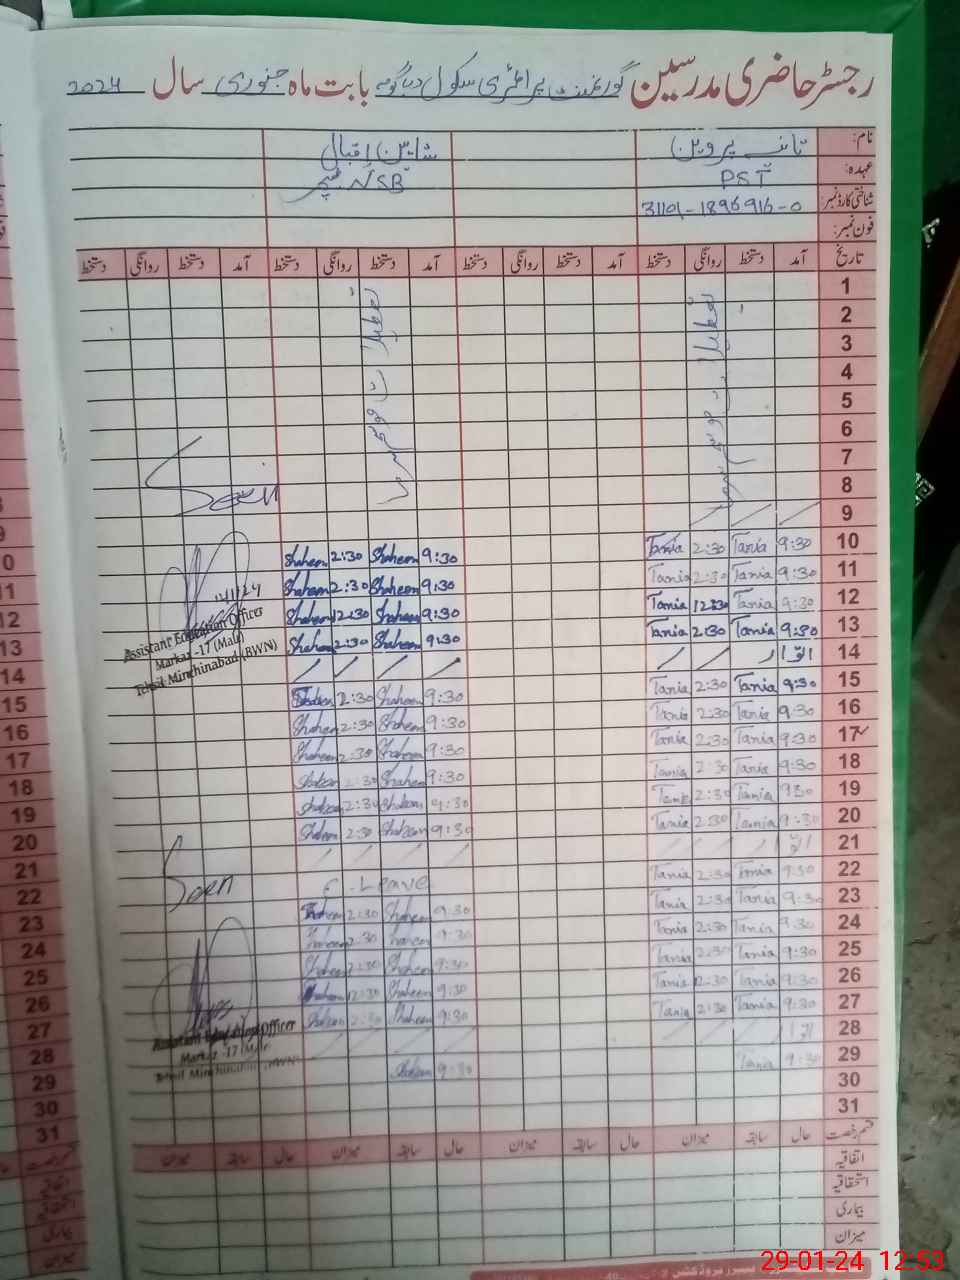 رجسٹر حاضری مدرسین گورنمنٹ پرائمری سکول بابت ماہ جنوری سال 2024
نام: تانیہ پروین شاہین اقبال
عہدہ: PST NSB ٹیچر
شناختی کارڈ نمبر: 31101-1896916-0
فون نمبر:
تاریخ آمد دستخط روانگی دستخط آمد دستخط روانگی دستخط آمد دستخط روانگی دستخط آمد دستخط روانگی دستخط
1
2
3
4
5
6
7
8
تعطیلات موسم سرما
تعطیلات موسم سرما
Seen
9
10 9:30 Tania 2:30 Tania 9:30 Shaheen 2:30 Shaheen
11 9:30 Tania 2:30 Tania 9:30 Shaheen 2:30 Shaheen
12 9:30 Tania 12:30 Tania 9:30 Shaheen 12:30 Shaheen
13 9:30 Tania 2:30 Tania 9:30 Shaheen 2:30 Shaheen
Assistant Education Officer
Markaz -17 (Male)
Tehsil Minchinabad (BWN)
14 اتوار
15 9:30 Tania 2:30 Tania 9:30 Shaheen 2:30 Shaheen
16 9:30 Tania 2:30 Tania 9:30 Shaheen 2:30 Shaheen
17 9:30 Tania 2:30 Tania 9:30 Shaheen 2:30 Shaheen
18 9:30 Tania 2:30 Tania 9:30 Shaheen 2:30 Shaheen
19 9:30 Tania 2:30 Tania 9:30 Shaheen 2:30 Shaheen
20 9:30 Tania 2:30 Tania 9:30 Shaheen 2:30 Shaheen
21
22 9:30 Tania 2:30 Tania Leave
Seen
23 9:30 Tania 2:30 Tania 9:30 Shaheen 2:30 Shaheen
24 9:30 Tania 2:30 Tania 9:30 Shaheen 2:30 Shaheen
25 9:30 Tania 2:30 Tania 9:30 Shaheen 2:30 Shaheen
26 9:30 Tania 12:30 Tania 9:30 Shaheen 12:30 Shaheen
27 9:30 Tania 2:30 Tania 9:30 Shaheen 2:30 Shaheen
Assistant Education Officer
Markaz -17 (Male)
Tehsil Minchinabad (BWN)
28
29 9:30 Tania 9:30 Shaheen
30
31
قسم رخصت حال سابقہ میزان حال سابقہ میزان حال سابقہ میزان حال سابقہ میزان
اتفاقیہ
استحقاقیہ
بیماری
میزان
29-01-24 12:53